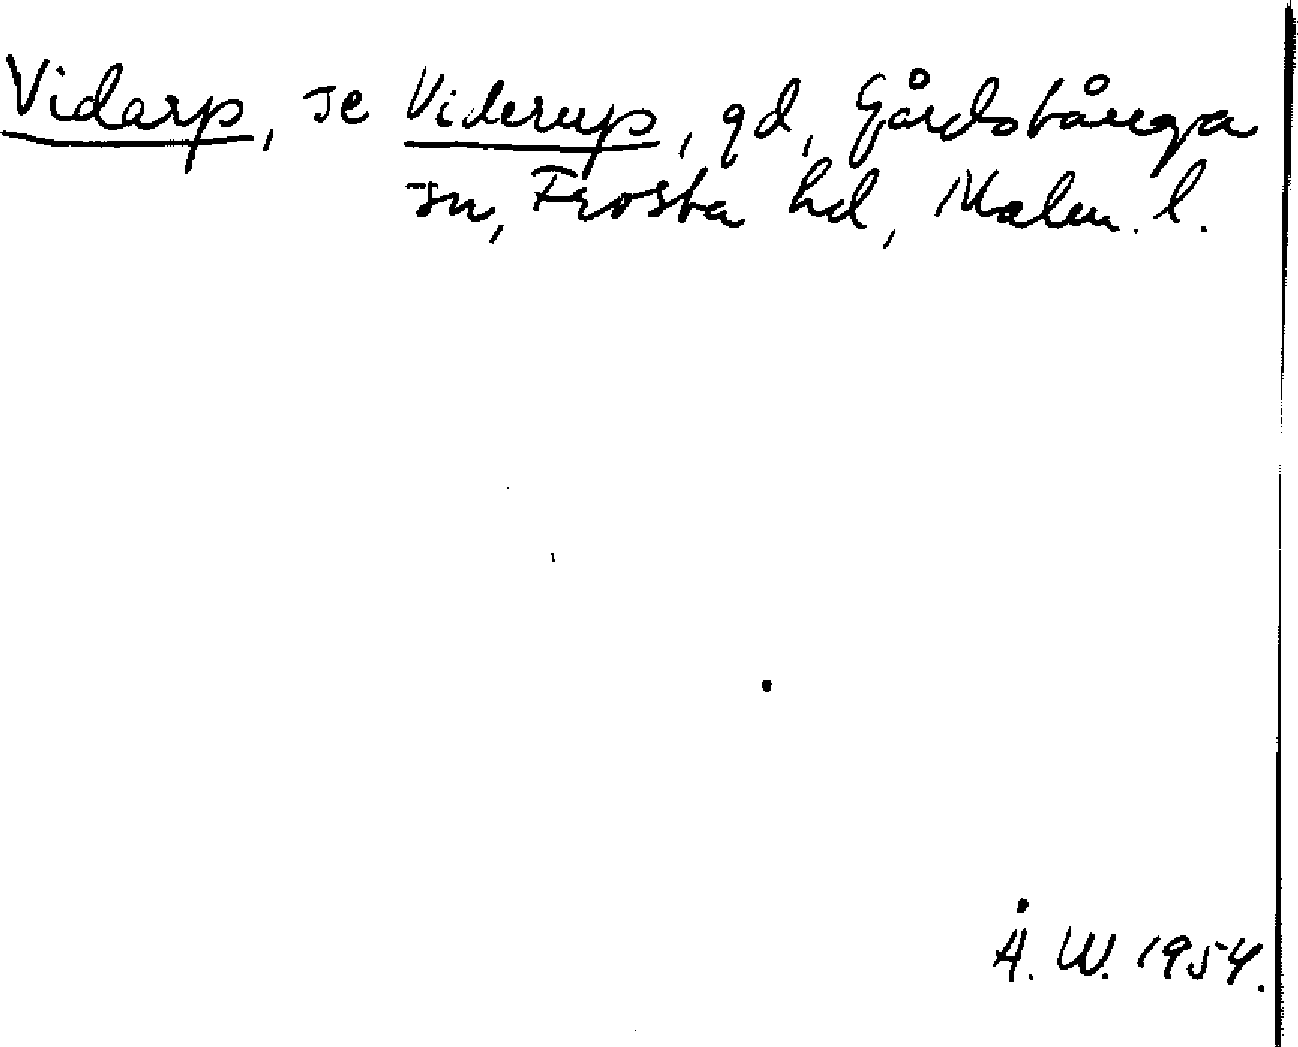 Vidarp, se Viderup, gd, Gårdstånga
sn, Frosta hd, Malm. l.
Å. W. 1954.